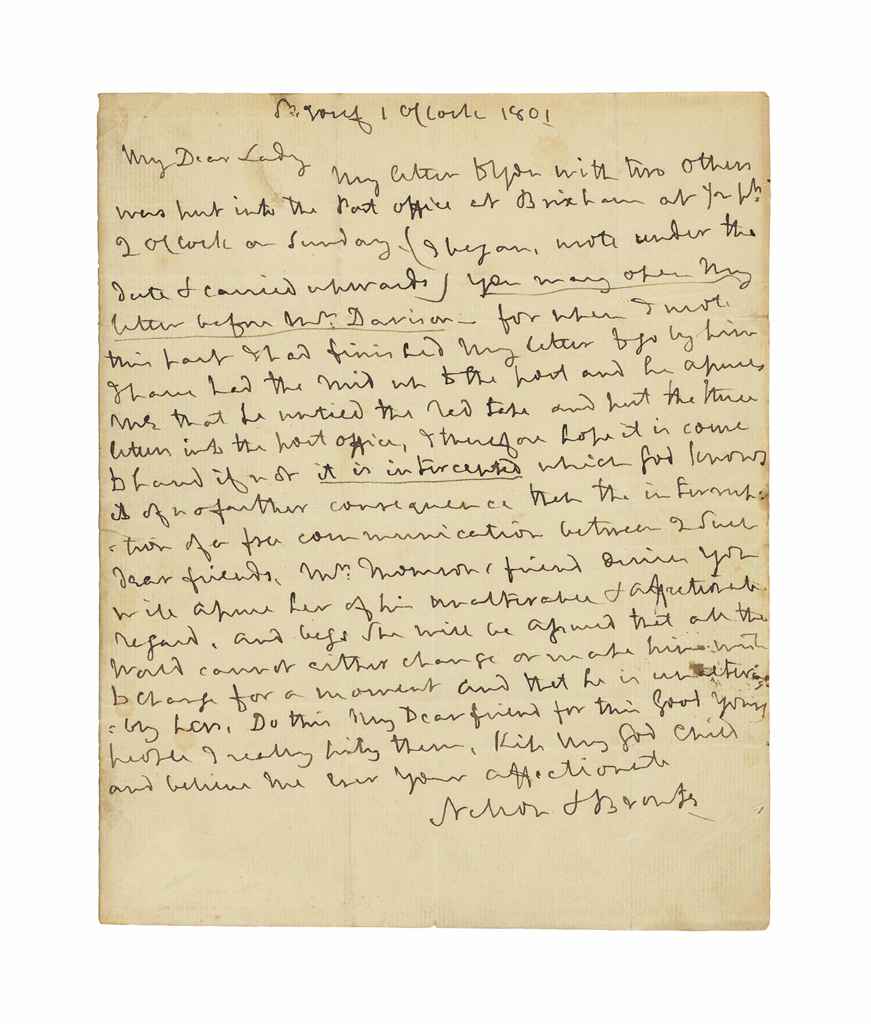 St Josef 1 O'Clock 1801
My Dear Lady
My letter to You with two others
was put into the Post office at Brixham at
2 O'Clock on Sunday, (I began, wrote under the
date & carried upwards) you may open my
letter before Mr. Davison – for when I wrote
this part I had finished My letter to go by him
I have had the Mid up to the post and he assures
me that he untied the red tape and put the three
letters into the post office, I therefore hope it is come
to hand if not it is intercepted which God knows
is of no farther consequence than the interrup:
:tion of a free communication between 2 such
dear friends, Mrs. Thomsons friend desires you
will assure her of his unalterable & affectionate
regard, and begs She will be assured that all the
World cannot either change or make him wish
to change for a moment and that he is unaltera:
:bly hers, Do this My Dear friend for this Good Young
people I really pity them, Kiss My God Child
and believe me Ever Your affectionate
Nelson & Bronte